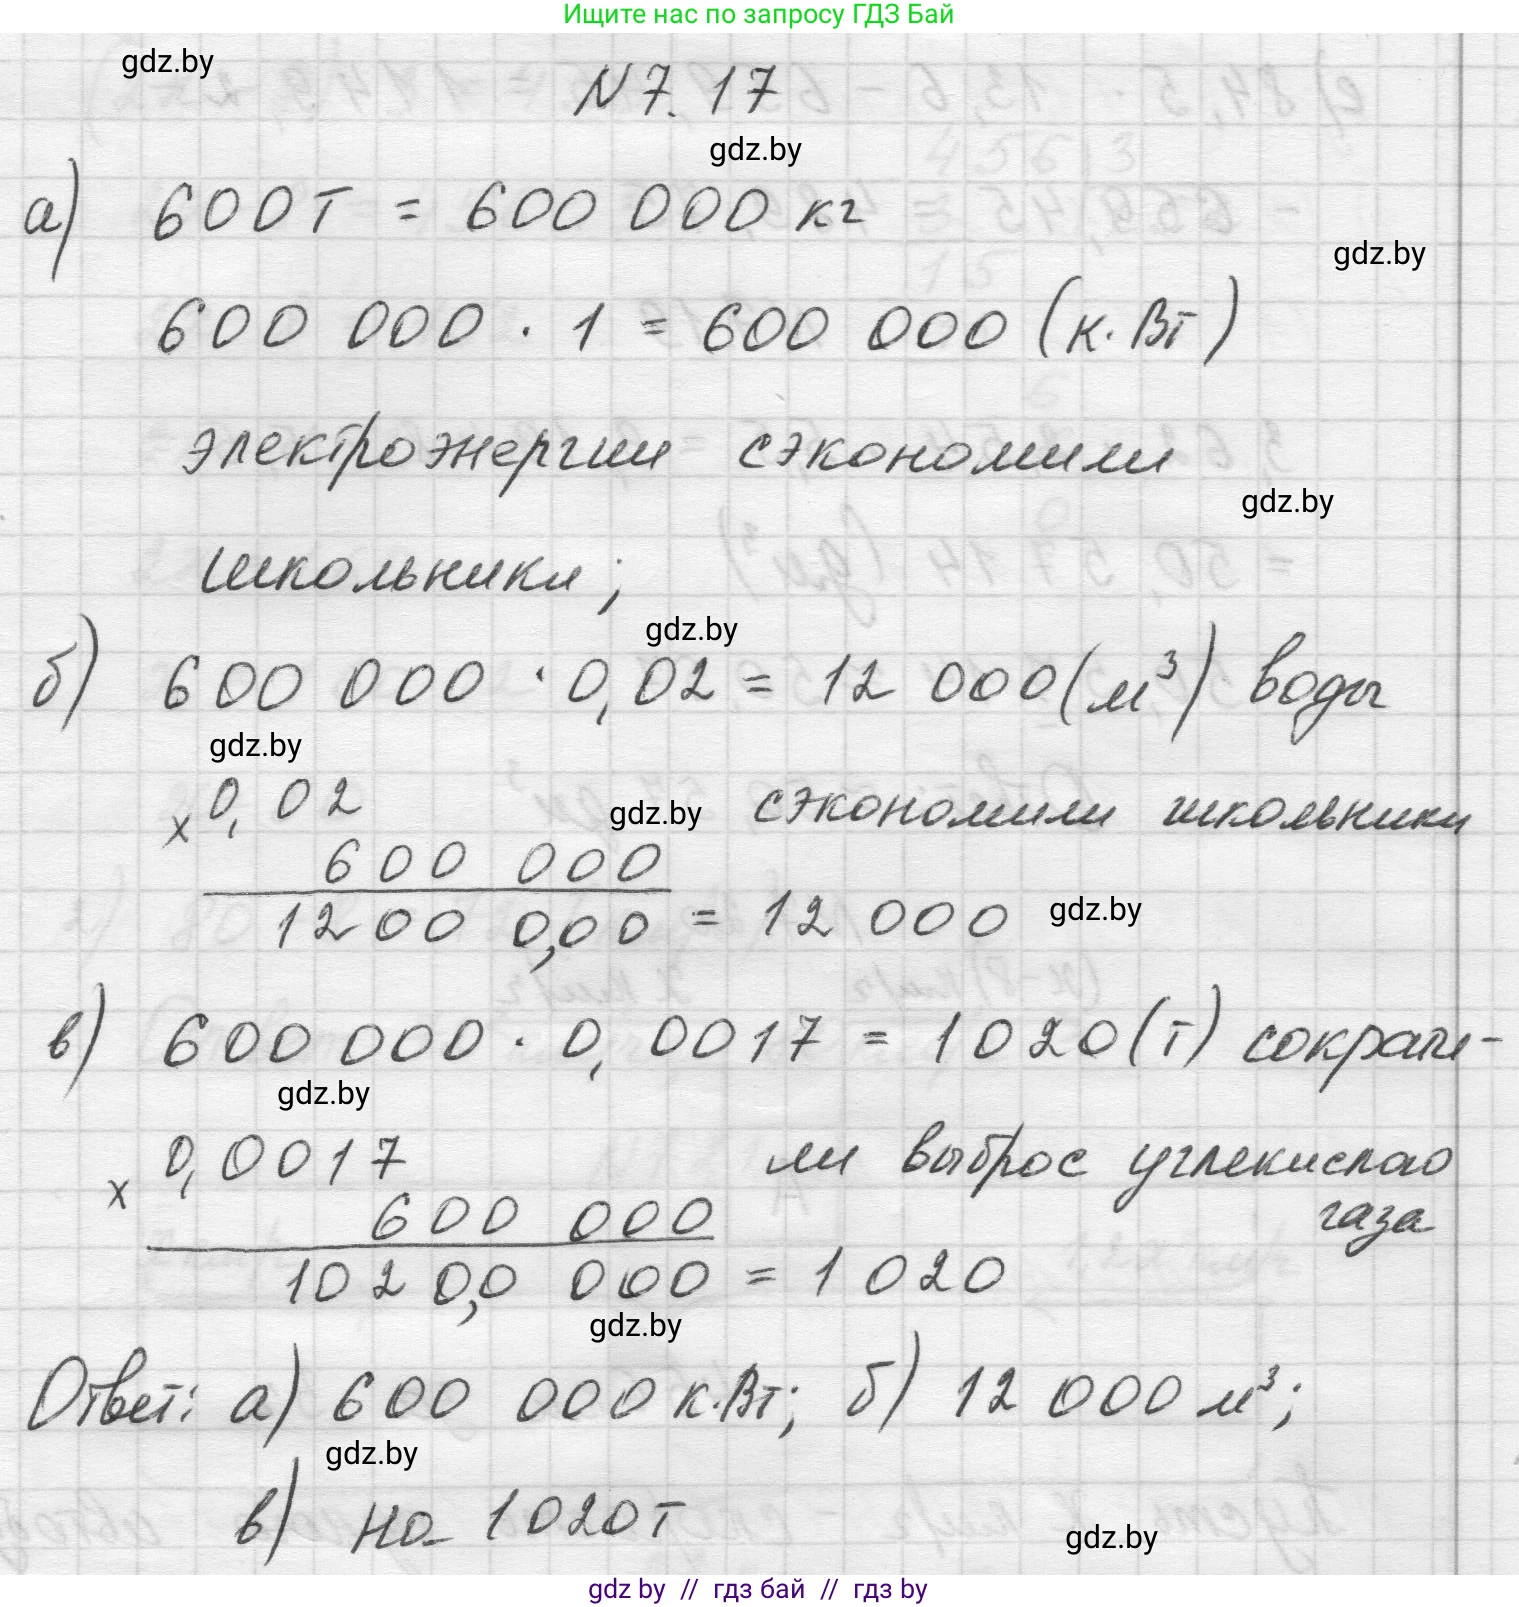 Ищите нас по запросу ГДЗ Бай
gdz.by
N 7.17
gdz.by
а) 600 т = 600 000 кг
gdz.by
600 000 · 1 = 600 000 (к·Вт)
электроэнергии сэкономили
gdz.by
школьники;
gdz.by
б) 600 000 · 0,02 = 12 000 (м³) воды
gdz.by
x 0,02 gdz.by сэкономили школьники
600 000
1200 0,00 = 12 000 gdz.by
в) 600 000 · 0,0017 = 1020 (т) сократи-
gdz.by
x 0,0017 ли выброс углекислого
600 000 газа
1020,0 000 = 1 020
gdz.by
Ответ: а) 600 000 к.Вт; б) 12 000 м³;
gdz.by
в) на 1020 т
gdz.by
gdz by // гдз бай // гдз by